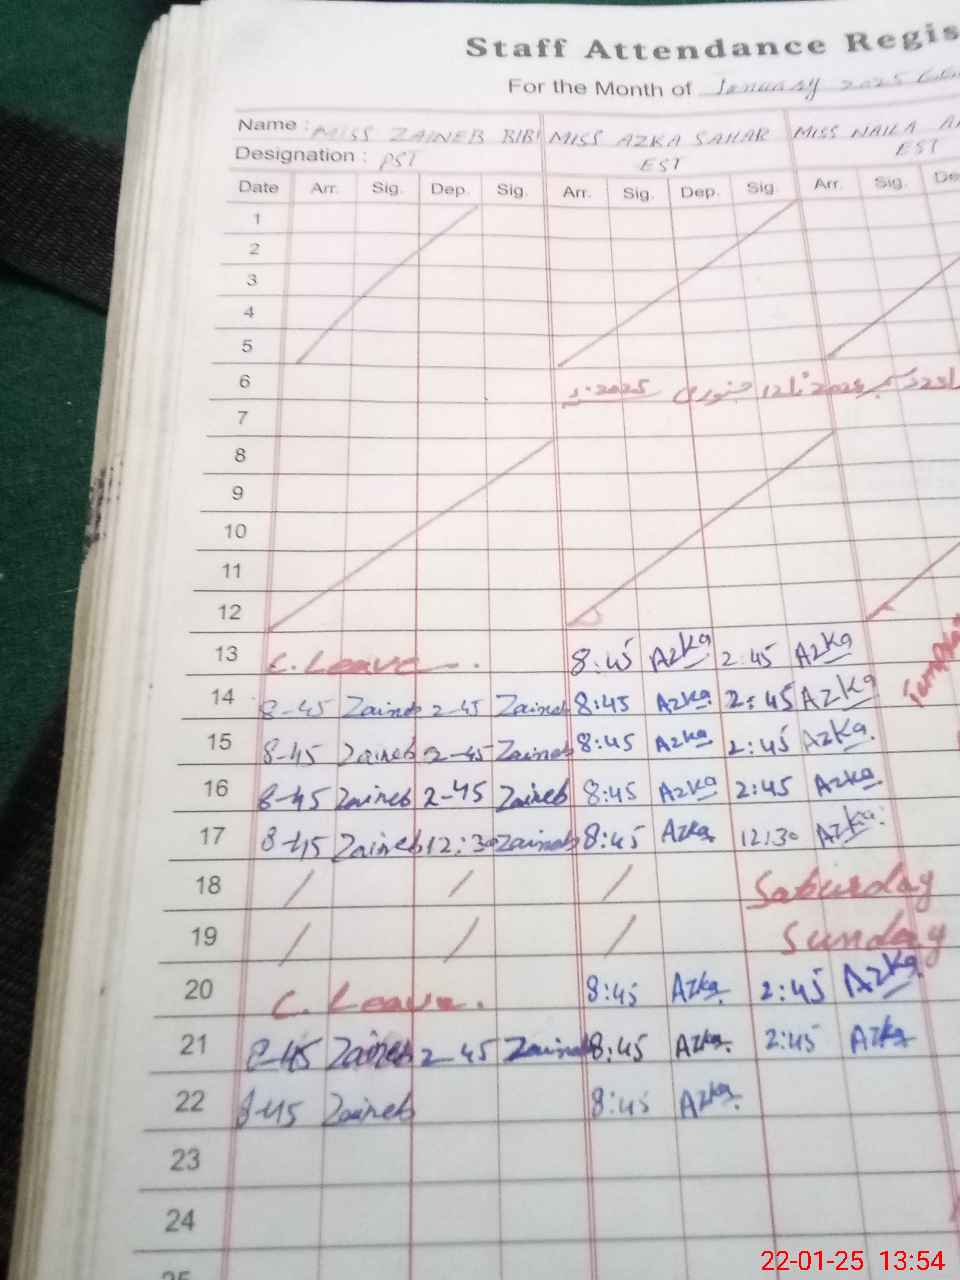 Staff Attendance Regis
For the Month of January 2025
Name : MISS ZAINEB BIBI MISS AZKA SAHAR MISS NAILA
Designation : PST EST EST
Date Arr. Sig. Dep. Sig. Arr. Sig. Dep. Sig. Arr. Sig. De
1
2
3
4
5
6 2025 جنوری 12 تا 2024 دسمبر 23
7
8
9
10
11
12
13 C. Leave 8:45 Azka 2:45 Azka
14 8-45 Zaineb 2-45 Zaineb 8:45 Azka 2:45 Azka
15 8-45 Zaineb 2-45 Zaineb 8:45 Azka 2:45 Azka
16 8-45 Zaineb 2-45 Zaineb 8:45 Azka 2:45 Azka
17 8-45 Zaineb 12:30 Zaineb 8:45 Azka 12:30 Azka
18 / / / Saturday
19 / / / Sunday
20 C. Leave. 8:45 Azka 2:45 Azka
21 8-45 Zaineb 2-45 Zaineb 8:45 Azka 2:45 Azka
22 8-45 Zaineb 8:45 Azka
23
24
25
22-01-25 13:54